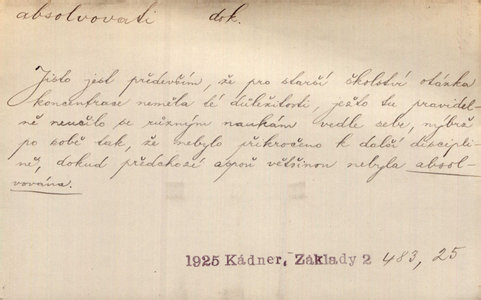 absolvovati dok.
Jisto jest především, že pro starší školství otázka
koncentrace neměla té důležitosti, ježto tu pravidel-
ně neučilo se různým naukám vedle sebe, nýbrž
po sobě tak, že nebylo přikročeno k další discipli-
ně, dokud předchozí aspoň většinou nebyla absol-
vována.
1925 Kádner, Základy 2 483, 25